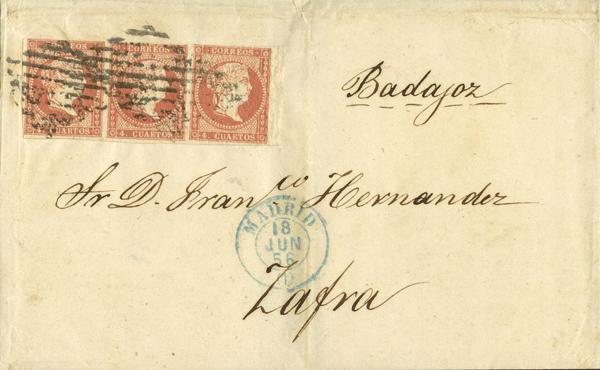 CORREOS CORREOS CORREOS
4 CUARTOS 4 CUARTOS 4 CUARTOS
Badajoz
Sr. D. Franco Hernandez
MADRID
18
JUN
56
Zafra